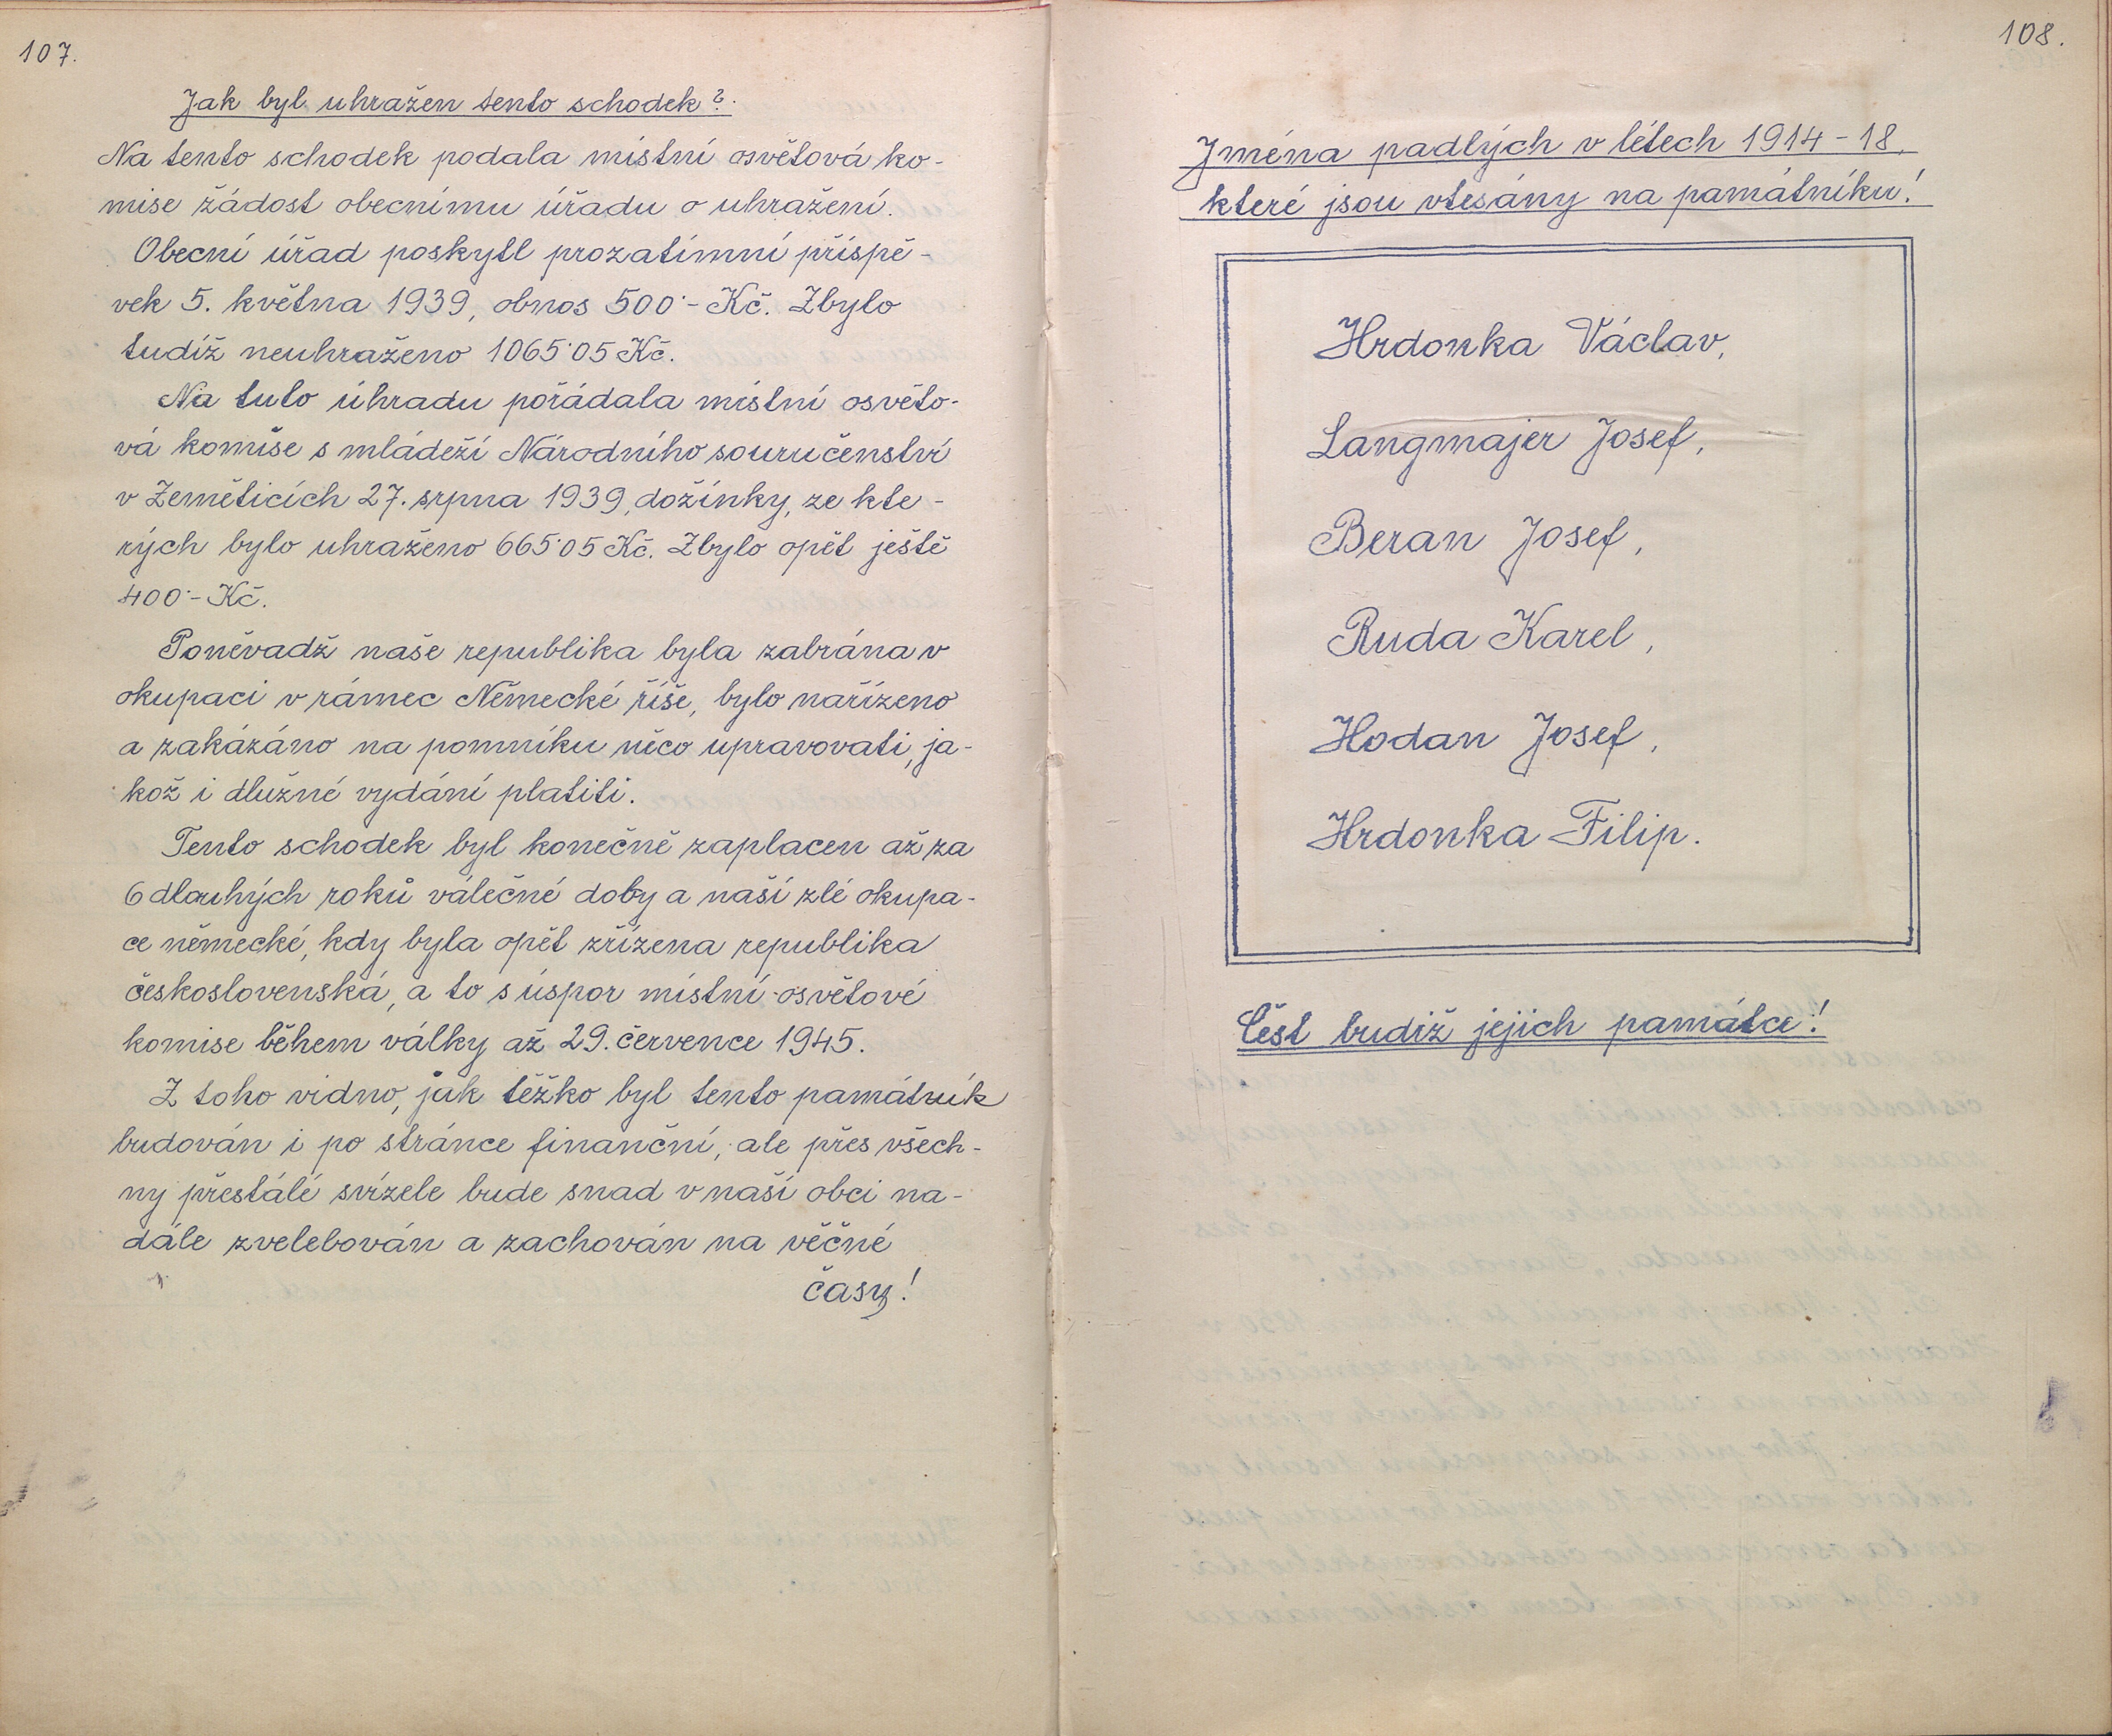 107.
Jak byl uhražen tento schodek?
Na tento schodek podala místní osvětová ko-
mise žádost obecnímu úřadu o uhražení.
Obecní úřad poskytl prozatímní příspě-
vek 5. května 1939, obnos 500·- Kč. Zbylo
tudíž neuhraženo 1065·05 Kč.
Na tuto úhradu pořádala místní osvěto-
vá komise s mládeží Národního souručenství
v Zeměticích 27. srpna 1939, dožínky, ze kte-
rých bylo uhraženo 665·05 Kč. Zbylo opět ještě
400·- Kč.
Poněvadž naše republika byla zabrána v
okupaci v rámec Německé říše, bylo nařízeno
a zakázáno na pomníku něco upravovati, ja-
kož i dlužné vydání platiti.
Tento schodek byl konečně zaplacen až za
6 dlouhých roků válečné doby a naší zlé okupa-
ce německé, kdy byla opět zřízena republika
československá, a to s úspor místní osvětové
komise během války až 29. července 1945.
Z toho vidno, jak těžko byl tento památník
budován i po stránce finanční, ale přes všech-
ny přestálé svízele bude snad v naší obci na-
dále zvelebován a zachován na věčné
časy!
108.
Jména padlých v létech 1914-18,
které jsou vtesány na památníku!
Hrdonka Václav,
Langmajer Josef,
Beran Josef,
Ruda Karel,
Hodan Josef,
Hrdonka Filip.
Čest budiž jejich památce!